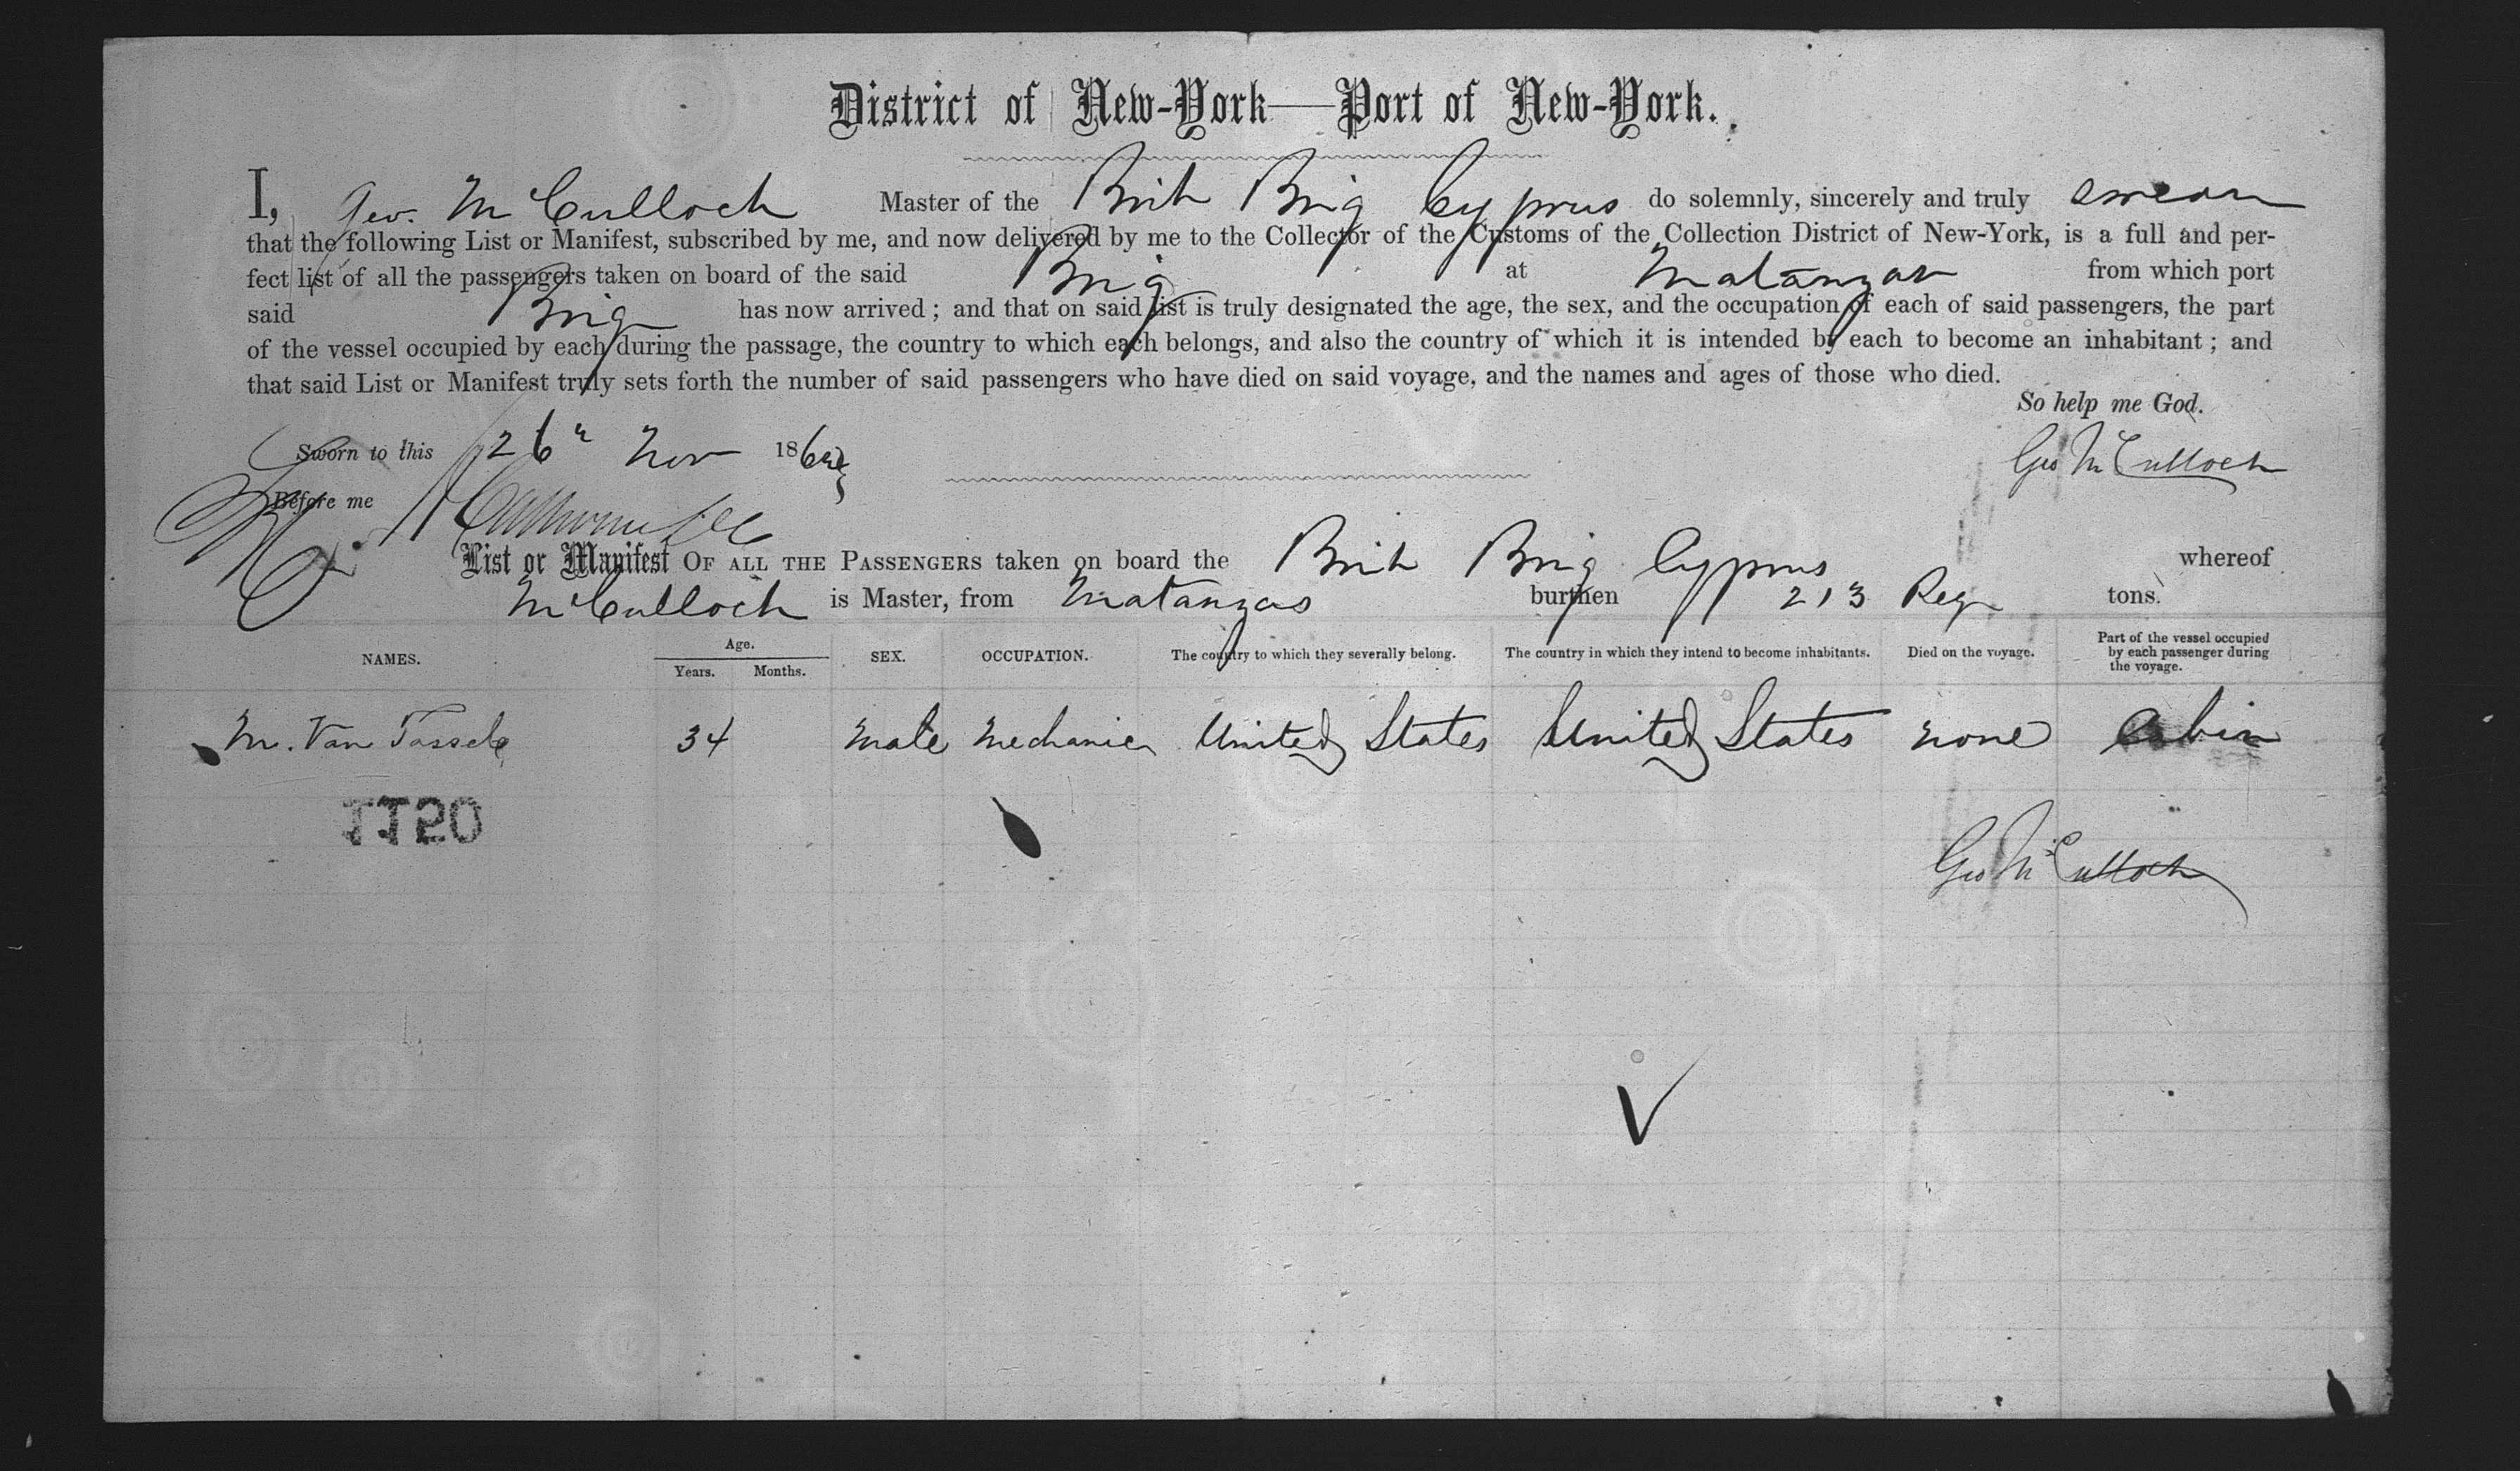 District of New-York—Port of New-York.
I, Geo. McCulloch Master of the Brit Brig Cyprus do solemnly, sincerely and truly swear
that the following List or Manifest, subscribed by me, and now delivered by me to the Collector of the Customs of the Collection District of New-York, is a full and per-
fect list of all the passengers taken on board of the said Brig at Matanzas from which port
said Brig has now arrived ; and that on said list is truly designated the age, the sex, and the occupation of each of said passengers, the part
of the vessel occupied by each during the passage, the country to which each belongs, and also the country of which it is intended by each to become an inhabitant ; and
that said List or Manifest truly sets forth the number of said passengers who have died on said voyage, and the names and ages of those who died.
So help me God.
Sworn to this 26 Nov 186
Geo McCulloch
Before me
List or Manifest OF ALL THE PASSENGERS taken on board the Brit Brig Cyprus whereof
McCulloch is Master, from Matanzas burthen 213 Regr tons.
NAMES. Age. Years. Months. SEX. OCCUPATION. The country to which they severally belong. The country in which they intend to become inhabitants. Died on the voyage. Part of the vessel occupied by each passenger during the voyage.
M. Van Tassele 34 Male Mechanic United States United States none Cabin
1120
Geo McCulloch